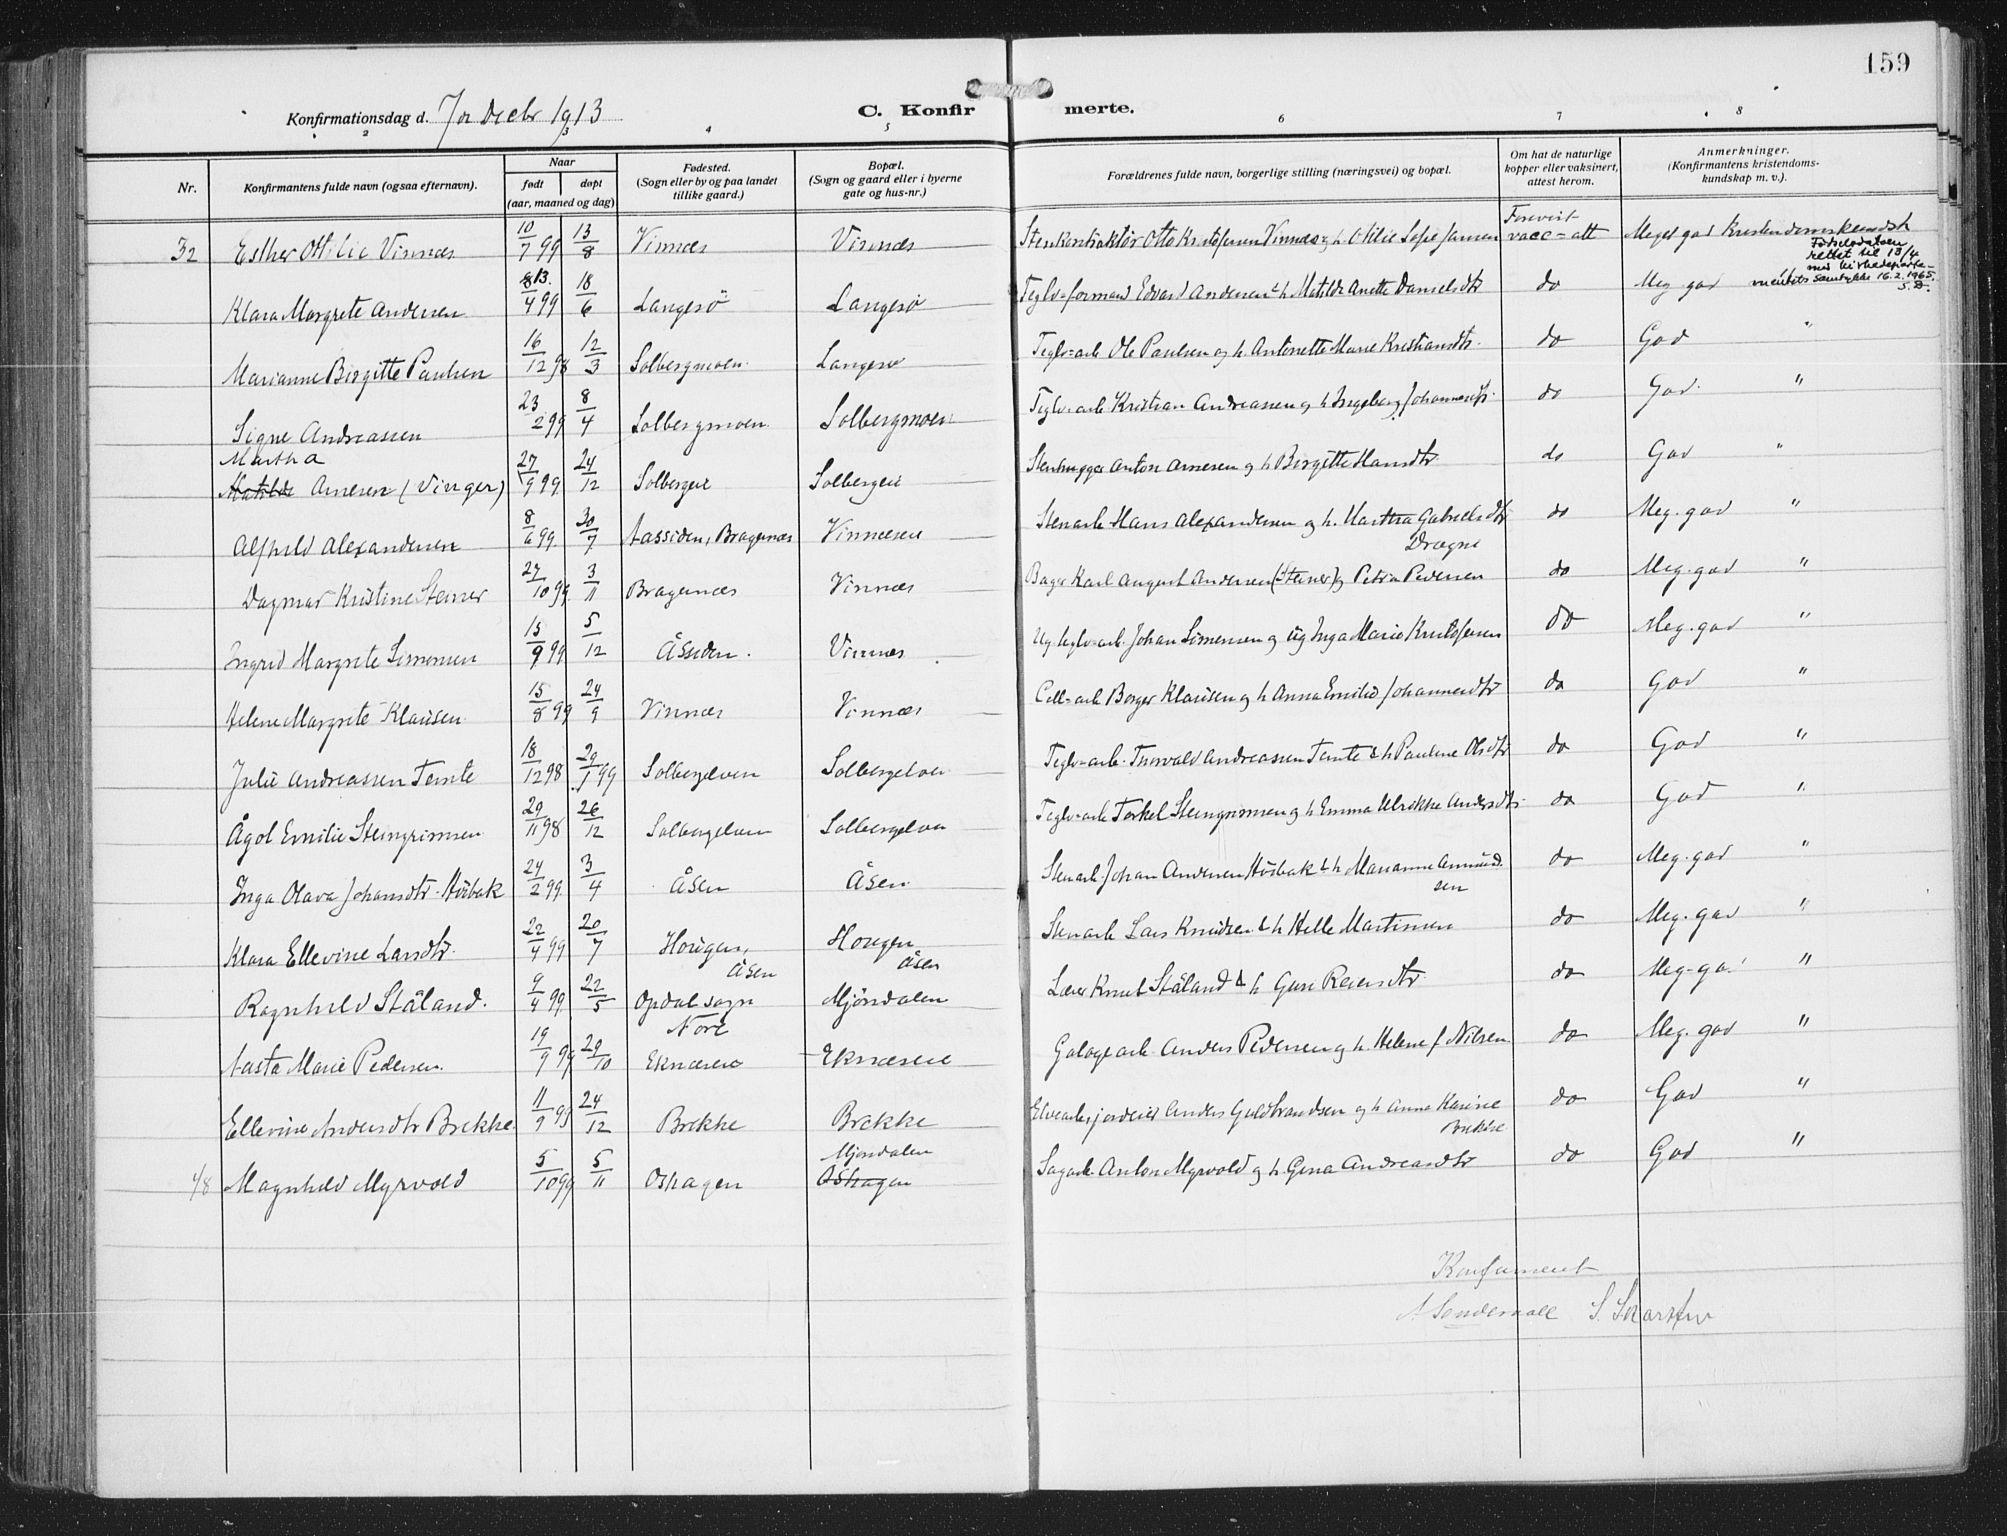 159
Konfirmationsdag d. 7de Decbr 1913
C. Konfirmerte.
2 3 4 5 6 7 8
Nr. Konfirmantens fulde navn (ogsaa efternavn). Naar født døpt (aar, maaned og dag) Fødested. (Sogn eller by og paa landet tillike gaard.) Bopæl. (Sogn og gaard eller i byerne gate og hus-nr.) Forældrenes fulde navn, borgerlige stilling (næringsvei) og bopæl. Om hat de naturlige kopper eller vaksinert, attest herom. Anmerkninger. (Konfirmantens kristendoms-kundskap m. v.).
32 Esther Ottilie Vinnæs 10/7 99 13/8 Vinnæs Vinnæs Stenkontraktør Otto Kristofersen Vinnæs og h. Otilie Sofie Jansen Forevist vacc=att Meget god Kristendomskundsk
Klara Margrete Andersen 8 13/4 99 18/6 Langesö Langesø Teglv=formand Edvard Andersen & h. Matilde Anette Danielsdtr do Meg god Fødselsdatoen rettet til 13/4 med kirkedepartementets samtykke 16.2.1965.
Marianne Birgitte Paulsen 16/12 98 12/3 Solbergmoen Langesø Teglv=arb Ole Paulsen og h. Antonette Marie Kristiansdtr. do God "
Signe Andreassen 23/2 99 8/4 Solbergmoen Solbergmoen Teglv-arb Kristian Andreassen og h Ingeborg Johannesdtr. do God "
Martha Matilde Arnesen (Vinger) 27/9 99 24/12 Solbergeie Solbergeie Stenhugger Anton Arnesen og h Birgitte Hansdtr do God "
Alfhild Alexandersen 8/6 99 30/7 Aassiden, Bragernæs Vinnæseie Stenarb Hans Alexandersen og h. Martha Gabrielsdtr do Meg. god "
Dagmar Kristine Steiner 27/10 99 3/11 Bragernæs Vinnæs Bager Karl August Andersen (Steiner) og Petra Pedersen Drægni do Meg. god "
Ingrid Margrete Simensen 15/9 99 5/12 Åssiden. Vinnæs Ug. teglv=arb. Johan Simensen og ug Inga Marie Kristofersen do Meg. god "
Helene Margrete Klausen 15/8 99 24/9 Vinnæs Vinnæs Cell=arb Borger Klausen og h Anna Emilie Johannesdtr do God "
Julie Andreassen Temte 18/12 98 29/1 99 Solbergelven Solbergelven Teglv=arb. Torvald Andreassen Temte & h Pauline Olsdtr do God "
Ågot Emilie Steingrimsen 29/11 98 26/12 Solbergelven Solbergelven Teglv=arb Terkel Steingrimsen og h Emma Ulrikke Andersdtr. do God "
Inga Olava Johansdtr. Husbak 24/2 99 3/4 Åsen Åsen Stenarb. Johan Andersen Husbak & h Marianne Amundsen do Meg. god "
Klara Ellevine Larsdtr. 22/4 99 20/7 Hougen, Åsen Hougen Åsen Stenarb Lars Knudsen & h Helle Martinsen do Meg. god "
Ragnhild Ståland. 9/4 99 22/5 Opdal sogn Nore Mjöndalen Lærer Knut Ståland & h Guri Reiersdtr do Meg. god "
Aasta Marie Pedersen. 19/9 99 29/10 Eknæseie Eknæseie Galoge arb. Anders Pedersen og h. Helene f Nilsen do Meg. god "
Ellevine Andersdtr Brekke. 11/9 99 24/12 Brekke Brekke Elvearb, jordeier Anders Guldbrandsen og h Anne Karine Brekke do God "
48 Magnhild Myrvold 5/10 99 5/11 Oshagen Mjøndalen Oshagen Sagarb. Anton Myrvold og h. Gina Andreasdtr do God "
Konfarneret